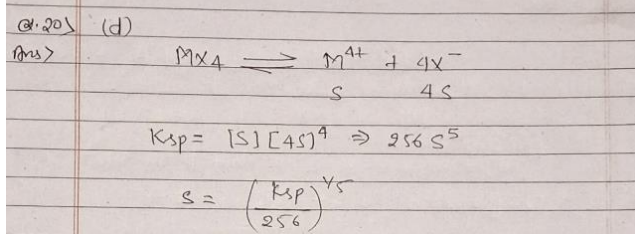 Q.20> (d)
Ans> MX4 ⇌ M⁴⁺ + 4X⁻
S 4S
Ksp = [S] [4S]⁴ ⇒ 256 S⁵
S = (Ksp/256)^1/5